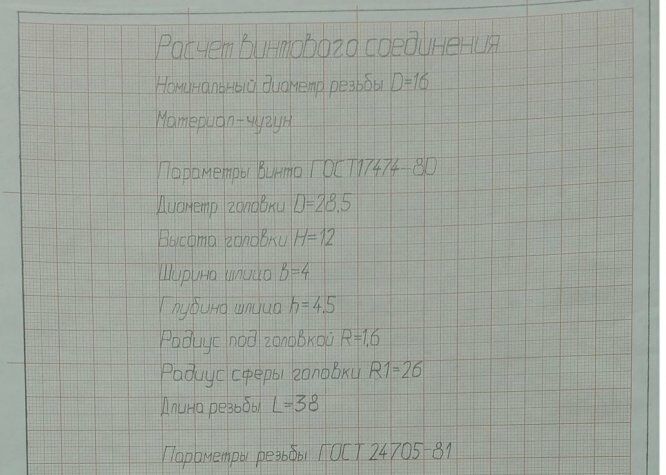 Расчет винтового соединения
Номинальный диаметр резьбы D=16
Материал-чугун
Параметры винта ГОСТ17474-80
Диаметр головки D=28,5
Высота головки H=12
Ширина шлица в=4
Глубина шлица h=4,5
Радиус под головкой R=1,6
Радиус сферы головки R1=26
Длина резьбы L=38
Параметры резьбы ГОСТ 24705-81